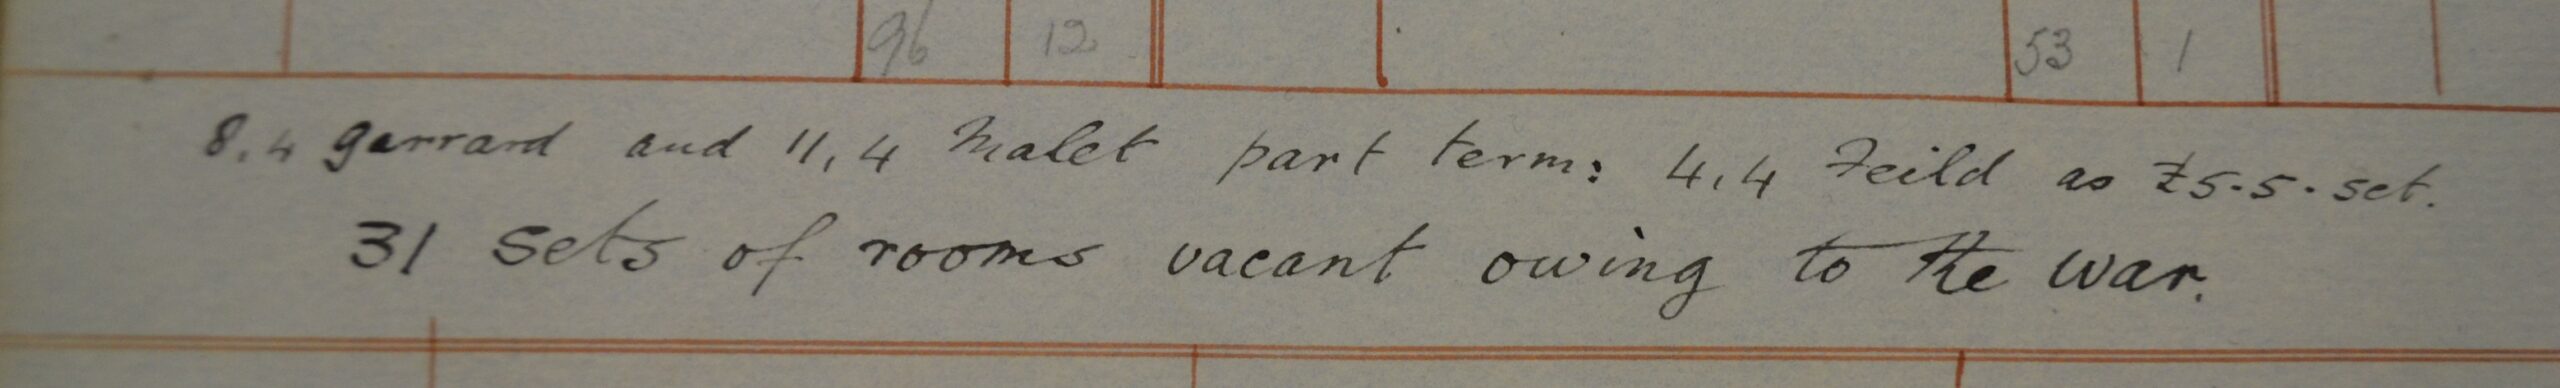 96 12 53 1
8,4 Garrard and 11,4 Malet part term: 4,4 Feild as £5.5. set.
31 sets of rooms vacant owing to the war.